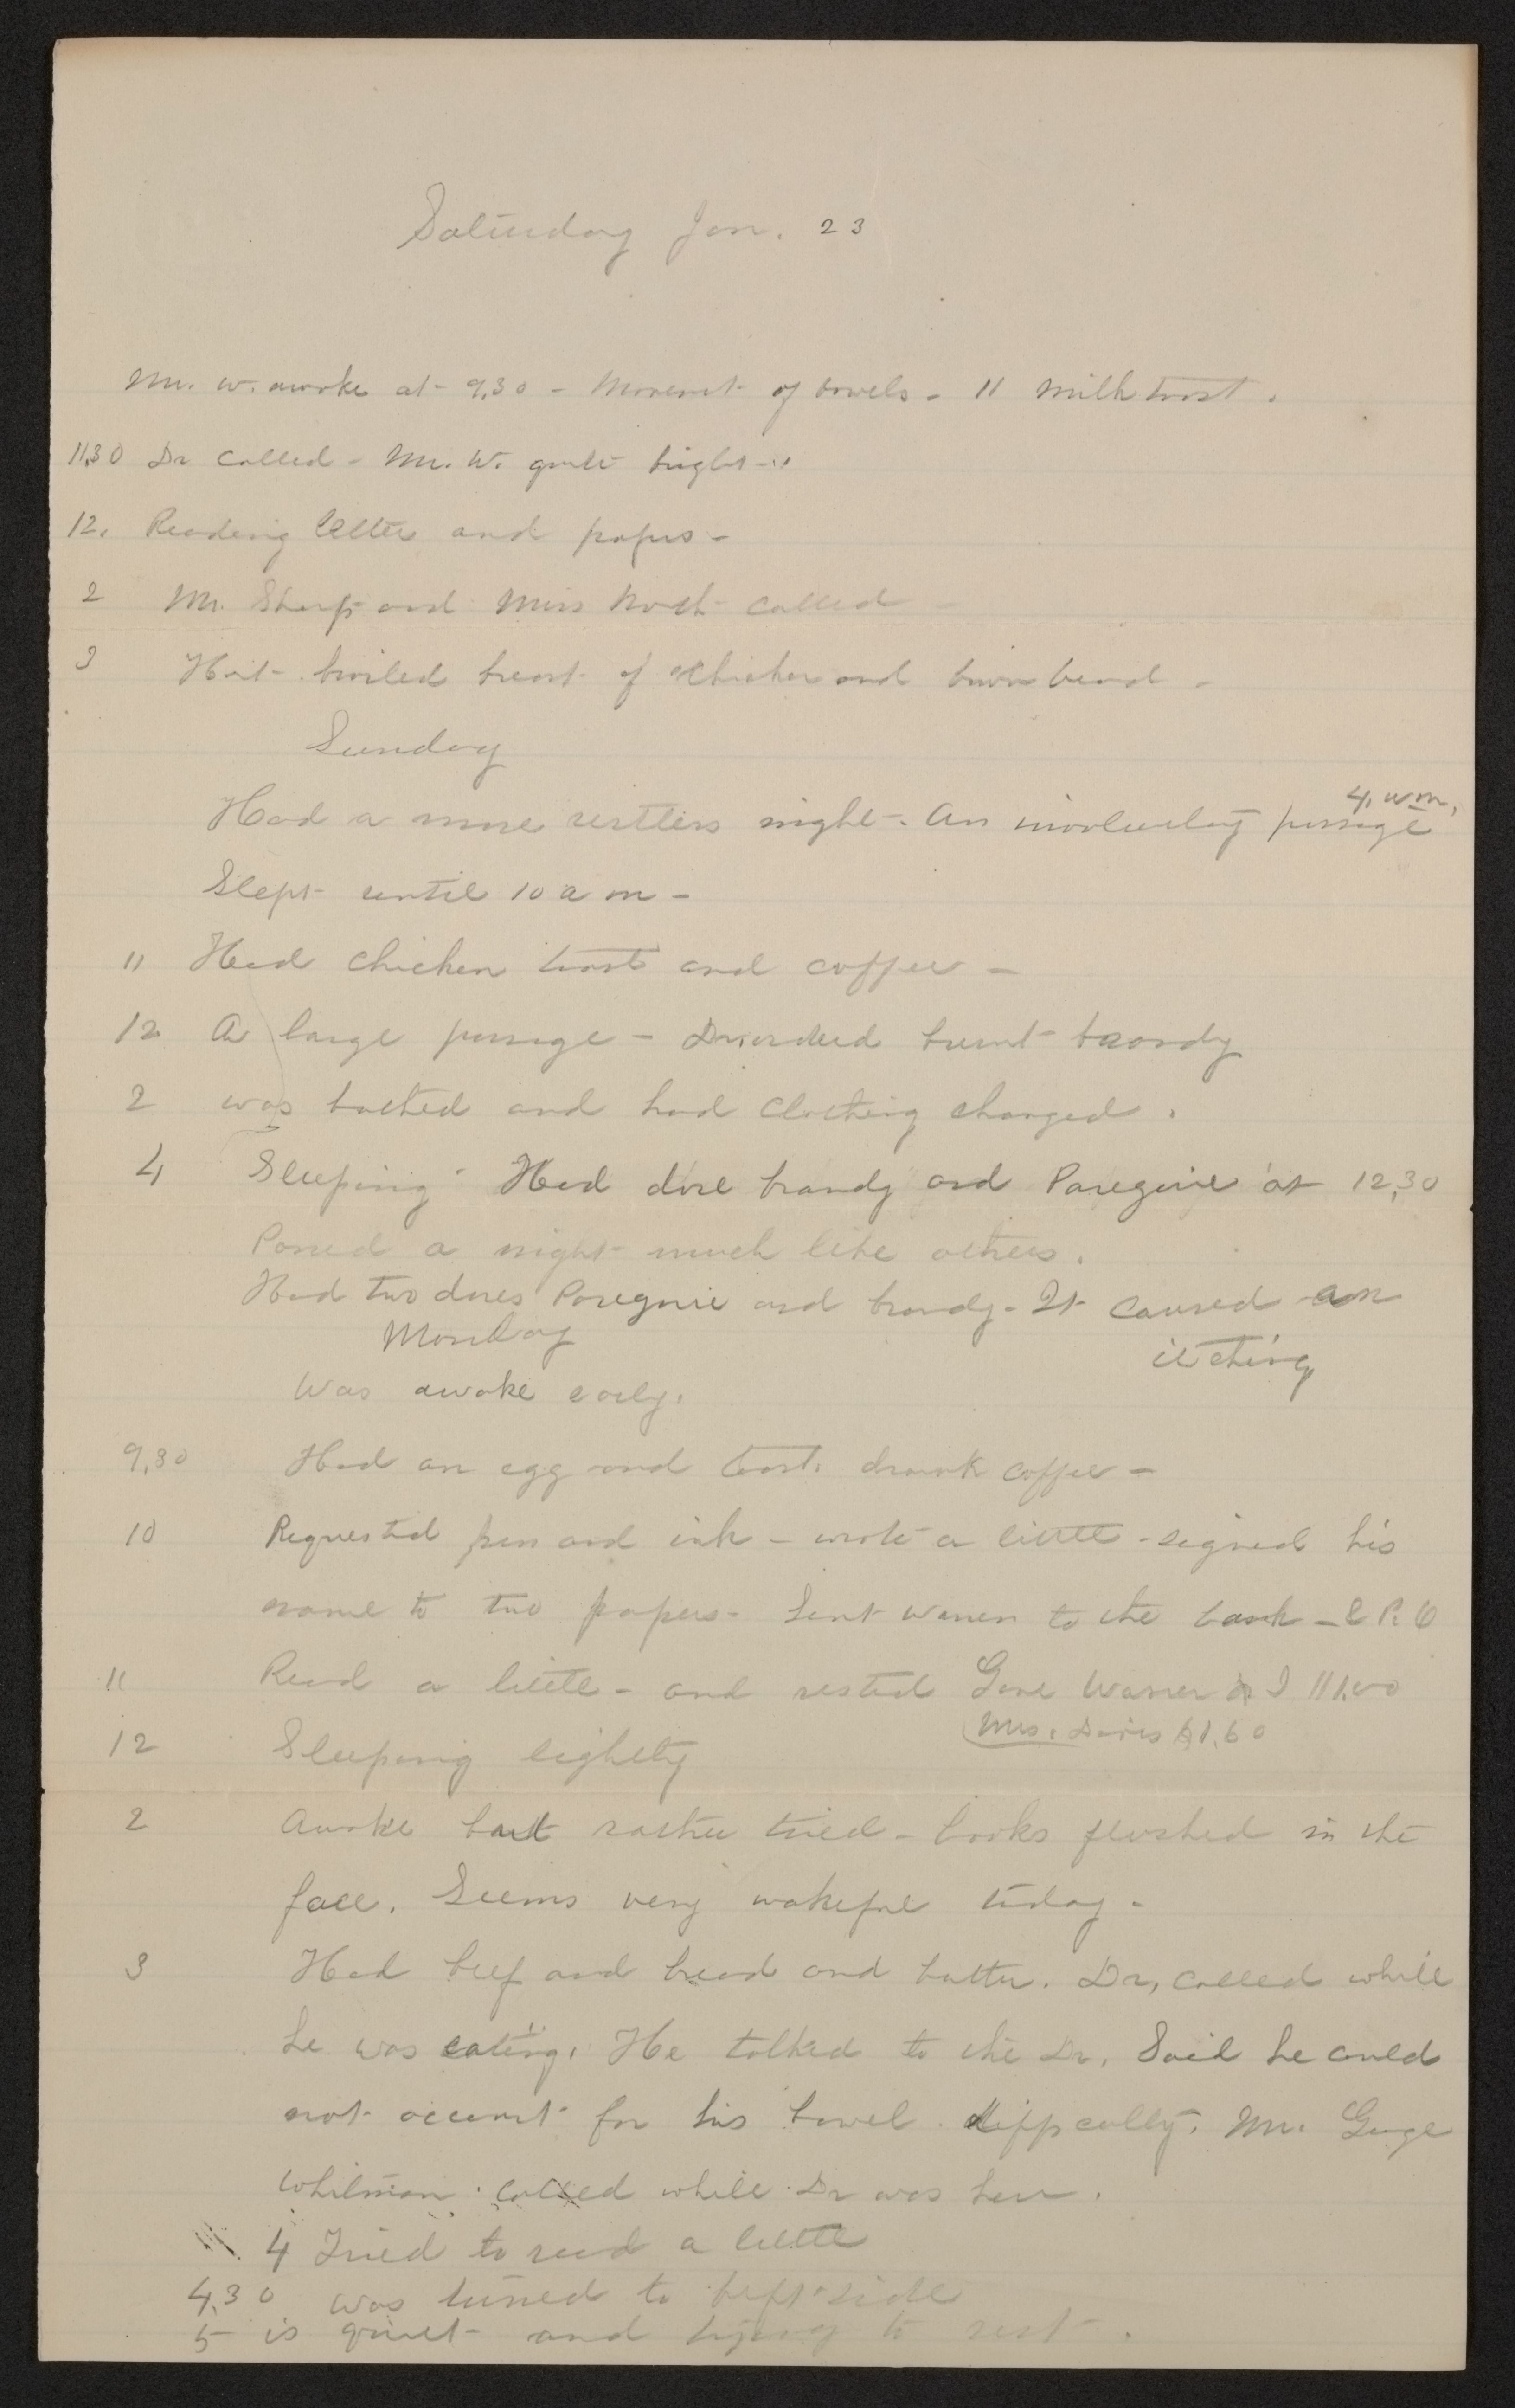 Saturday Jan. 23
Mr. W. awoke at 9,30 - Movemt of bowels - 11 Milk toast.
11,30 Dr called - Mr. W. quite bright -
12. Reading letters and papers -
2 Mr. Sharp and Miss called -
3 Had broiled breast of chicken and brown bread -
Sunday
4, a m,
Had a more restless night - An involuntary passage
Slept until 10 a m -
11 Had chicken toast and coffee -
12 A large passage - Dr ordered burnt brandy
2 was bathed and had clothing changed.
4 Sleeping Had dose brandy and Paregoric at 12,30
Passed a night much like others.
Had two doses Paregoric and brandy - It caused an
itching
Monday
Was awake early.
9,30 Had an egg and toast. drank coffee -
10 Requested pen and ink - wrote a little - signed his
name to two papers - Sent Warren to the bank -
11 Read a little - and rested Gave Warren
Mrs. Davis
12 Sleeping lightly
2 Awake but rather tired - looks flushed in the
face. Seems very wakeful today -
3 Had beef and bread and butter. Dr, called while
he was eating. He talked to the Dr. Said he could
not account for his bowel difficulty. Mr. George
Whitman called while Dr was here.
4 Tried to read a little
4,30 was turned to left side
5 is quiet and trying to rest.